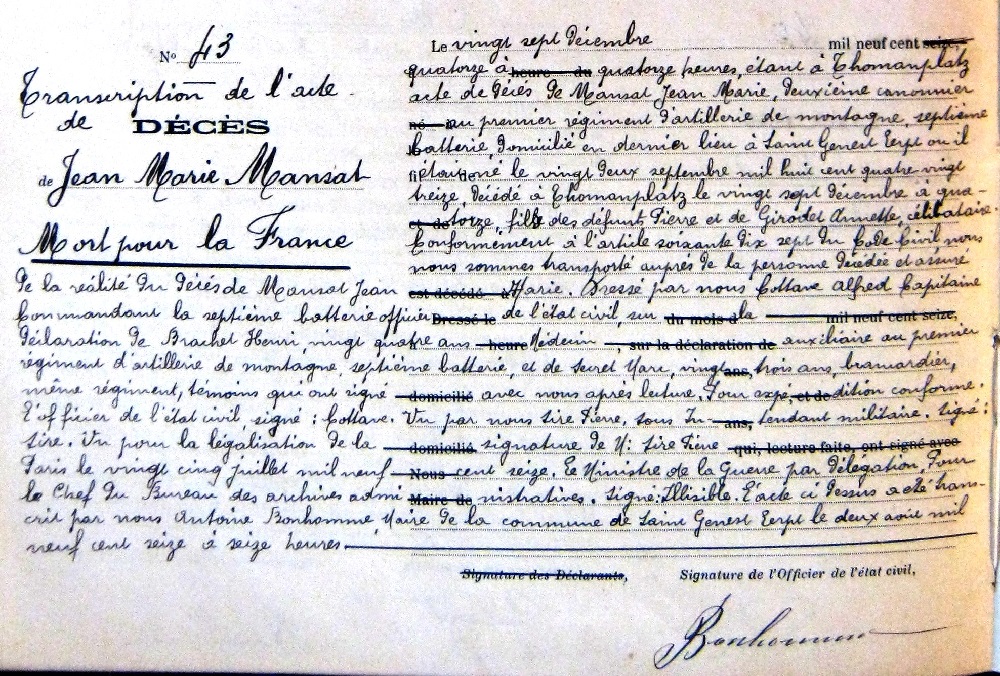 N° 43
Transcription de l'acte
de DÉCÈS
de Jean Marie Mansat
Mort pour la France
Le vingt sept Décembre mil neuf cent seize,
quatorze à heure du quatorze heures, étant à Thomanplatz
acte de Décés de Mansat Jean Marie, deuxième canonnier
né au premier régiment d'artillerie de montagne, septième
batterie, Domicilié en dernier lieu à Saint Genest Lerpt ou il
était né le vingt deux septembre mil huit cent quatre vingt
treize, décédé à Thomanplatz le vingt sept décembre à qua-
et de torze, fils des défunts Pierre et de Girodet Annette, célibataire.
Conformément à l'article soixante dix sept du Code Civil nous
nous sommes transporté auprés de la personne décédée et assuré
De la réalité du Décés de Mansat Jean est décédé à Marie. Dressé par nous Cottave Alfred Capitaine
Commandant la septième batterie officier Dressé le de l'état civil, sur du mois d la mil neuf cent seize,
Déclaration de Brachet Henri, vingt quatre ans heure Médecin , sur la déclaration de auxiliaire au premier
régiment d'artillerie de montagne, septième batterie, et de Marc, vingt ans, trois ans, bramardier,
même régiment, témoins qui ont signé domicilié avec nous après lecture. Pour expé et de dition conforme.
L'officier de l'état civil, signé : Cottave. Vu par nous tire Pierre, sous In- ans, tendant militaire. signé :
tire. Vu pour la légalisation de la domicilié signature de M: tire Pierre qui, lecture faite, ont signé avec
Paris le vingt cinq juillet mil neuf Nous cent seize. Le Ministre de la Guerre par délégation, Pour
le Chef du Bureau des archives admi Maire de nistratives. Signé: Illisible. L'acte ci dessus a été trans-
crit par nous Antoine Bonhomme, Maire de la commune de Saint Genest Lerpt le deux aout mil
neuf cent seize à seize heures
Signature des Déclarants, Signature de l'Officier de l'état civil,
Bonhomme